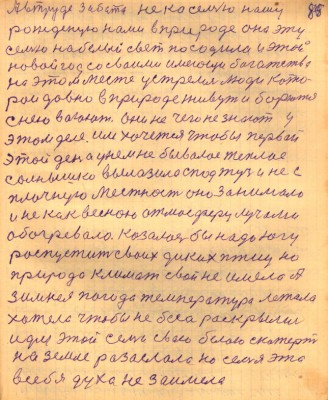 А в труде забота не ка семью нашу 85
рожденую нами в природе она эту
семью на белый свет посадила и этой
новой год со своими имеющи богатства
на этом месте устремя люди кото-
рои довно в природе живут и борются
с нею воюют. они не чего не знают у
этом деле. им хочется чтобы первой
этой ден а у нем не бывалое теплае
солнышко вылазило с под туз и не с
плачную местност оно занимало
и не как весною атмосферу лучами
обогревала. Казалос бы надо югу
роспустит своих диких птиц но
природа климат свой не имела а
зимнея погода температура летала
хотела чтобы небеса раскрылис
и для этой семи свою белаю скатерт
на земле разаслала но семя эта
в себя духа не заимела